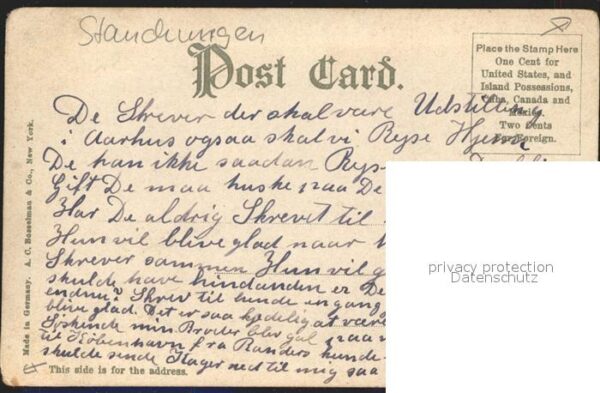 Standrungen
Post Card.
Place the Stamp Here
One Cent for
United States, and
Island Possessions,
Cuba, Canada and
Mexico
Two Cents
For Foreign.
De Skrever der skal være Udstilling
i Aarhus ogsaa skal vi Rejse Hjem
De kan ikke saadan Rejse
Gift De maa huske paa De
Har De aldrig Skrevet til
Hun vil blive glad naar
Skrever sammen Hun vil g
skulde have hindanden er De
endnu? Skrev til hende engang
blive glad. Det er saa kjedelig at være
Søskende min Broder blev gal paa
til København fra Randers hunde
skulde sende Kager ned til mig saa
Made in Germany. A. C. Bosselman & Co., New York.
This side is for the address.
privacy protection
Datenschutz